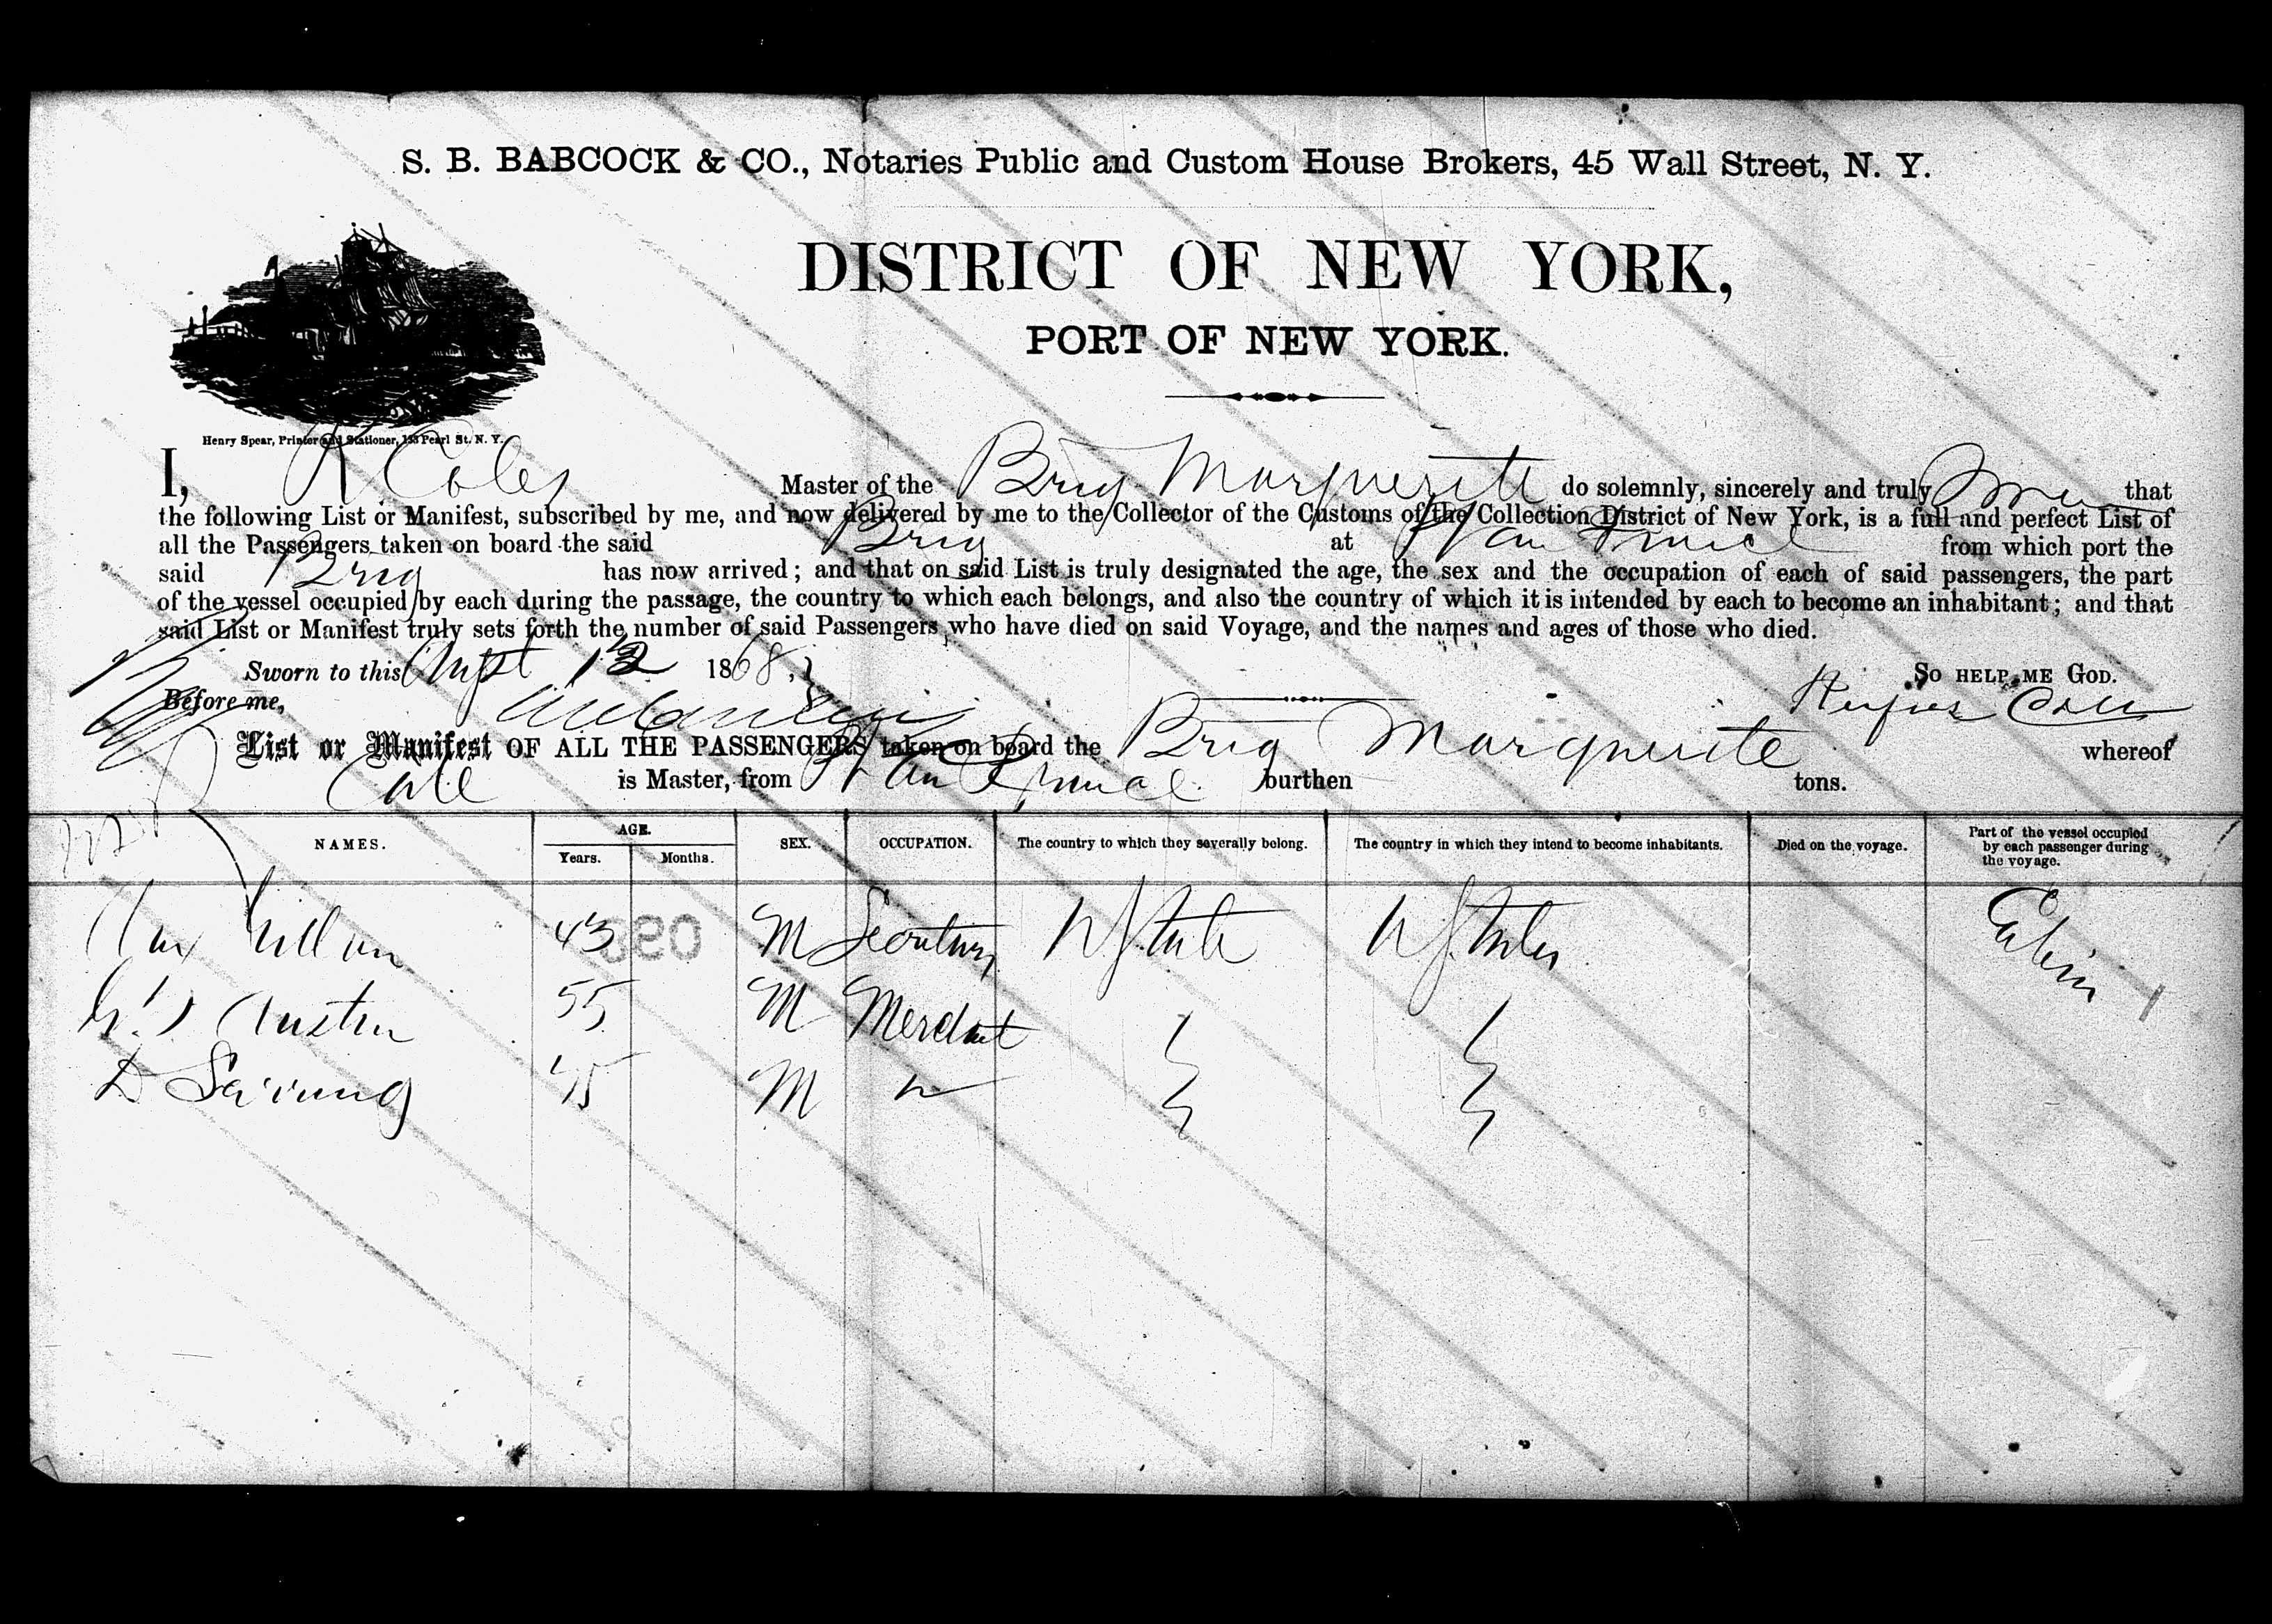 S. B. BABCOCK & CO., Notaries Public and Custom House Brokers, 45 Wall Street, N. Y.
DISTRICT OF NEW YORK,
PORT OF NEW YORK.
Henry Spear, Printer and Stationer, 133 Pearl St. N. Y.
I, R Coles Master of the Brig Marguerite do solemnly, sincerely and truly that
the following List or Manifest, subscribed by me, and now delivered by me to the Collector of the Customs of the Collection District of New York, is a full and perfect List of
all the Passengers taken on board the said Brig at from which port the
said Brig has now arrived; and that on said List is truly designated the age, the sex and the occupation of each of said passengers, the part
of the vessel occupied by each during the passage, the country to which each belongs, and also the country of which it is intended by each to become an inhabitant; and that
said List or Manifest truly sets forth the number of said Passengers who have died on said Voyage, and the names and ages of those who died.
Sworn to this 12 1868. SO HELP ME GOD.
Before me, Rufus Coles
List or Manifest OF ALL THE PASSENGERS taken on board the Brig Marguerite whereof
Cole is Master, from burthen tons.
NAMES. AGE. Years. Months. SEX. OCCUPATION. The country to which they severally belong. The country in which they intend to become inhabitants. Died on the voyage. Part of the vessel occupied by each passenger during the voyage.
43 M Secretary U States U States Cabin
Austin 55 M Merchant
D 45 M